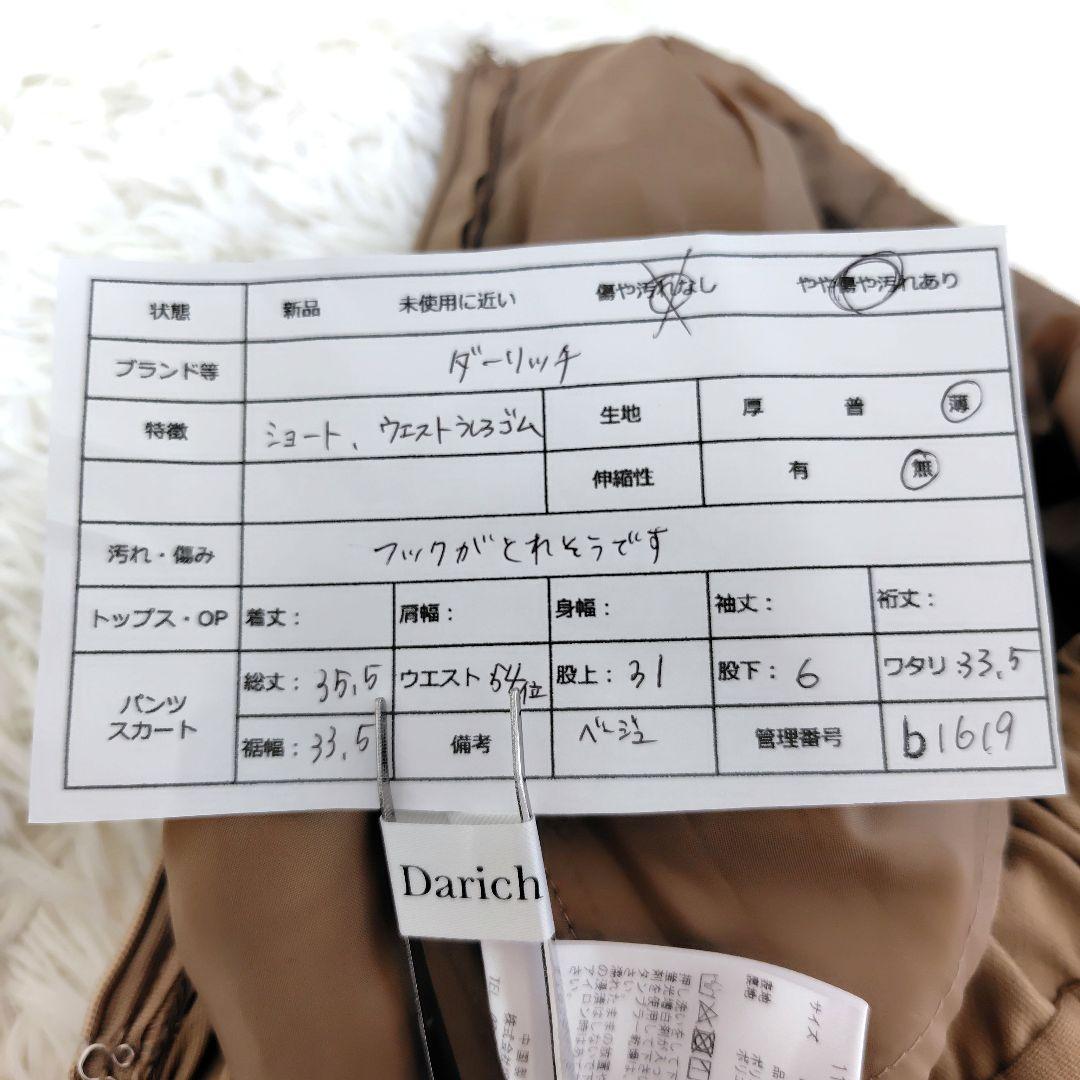 状態 新品 未使用に近い 傷や汚れなし やや傷や汚れあり
ブランド等 ダーリッチ
特徴 ショート、ウエストうしろゴム 生地 厚 普 薄
伸縮性 有 無
汚れ・傷み フックがとれそうです
トップス・OP 着丈： 肩幅： 身幅： 袖丈： 裄丈：
パンツ
スカート
総丈：35.5 ウエスト 64位 股上：31 股下：6 ワタリ 33.5
裾幅：33.5 備考 ベージュ 管理番号 b1619
Darich
サイズ
表地
裏地
TEL
株式会社